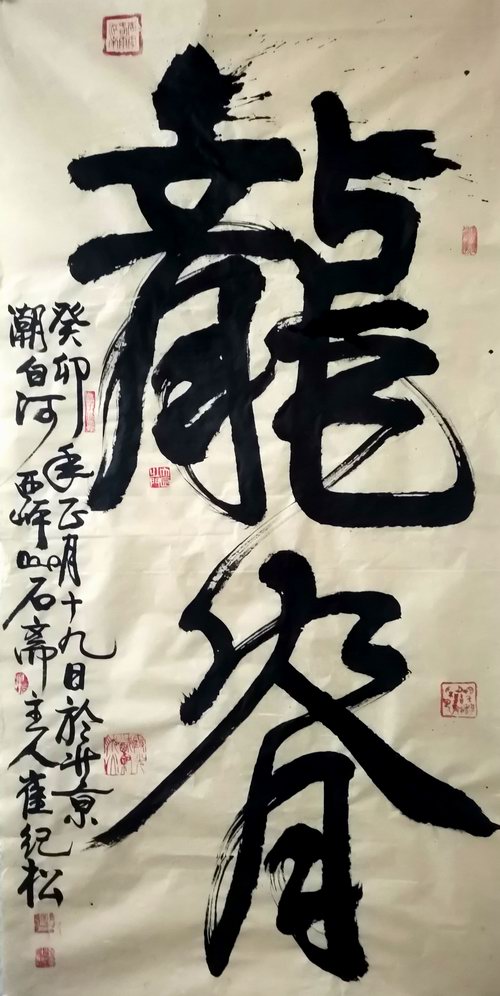 龍脊
癸卯年正月十九日於北京
潮白河西峰山石斋主人崔纪松